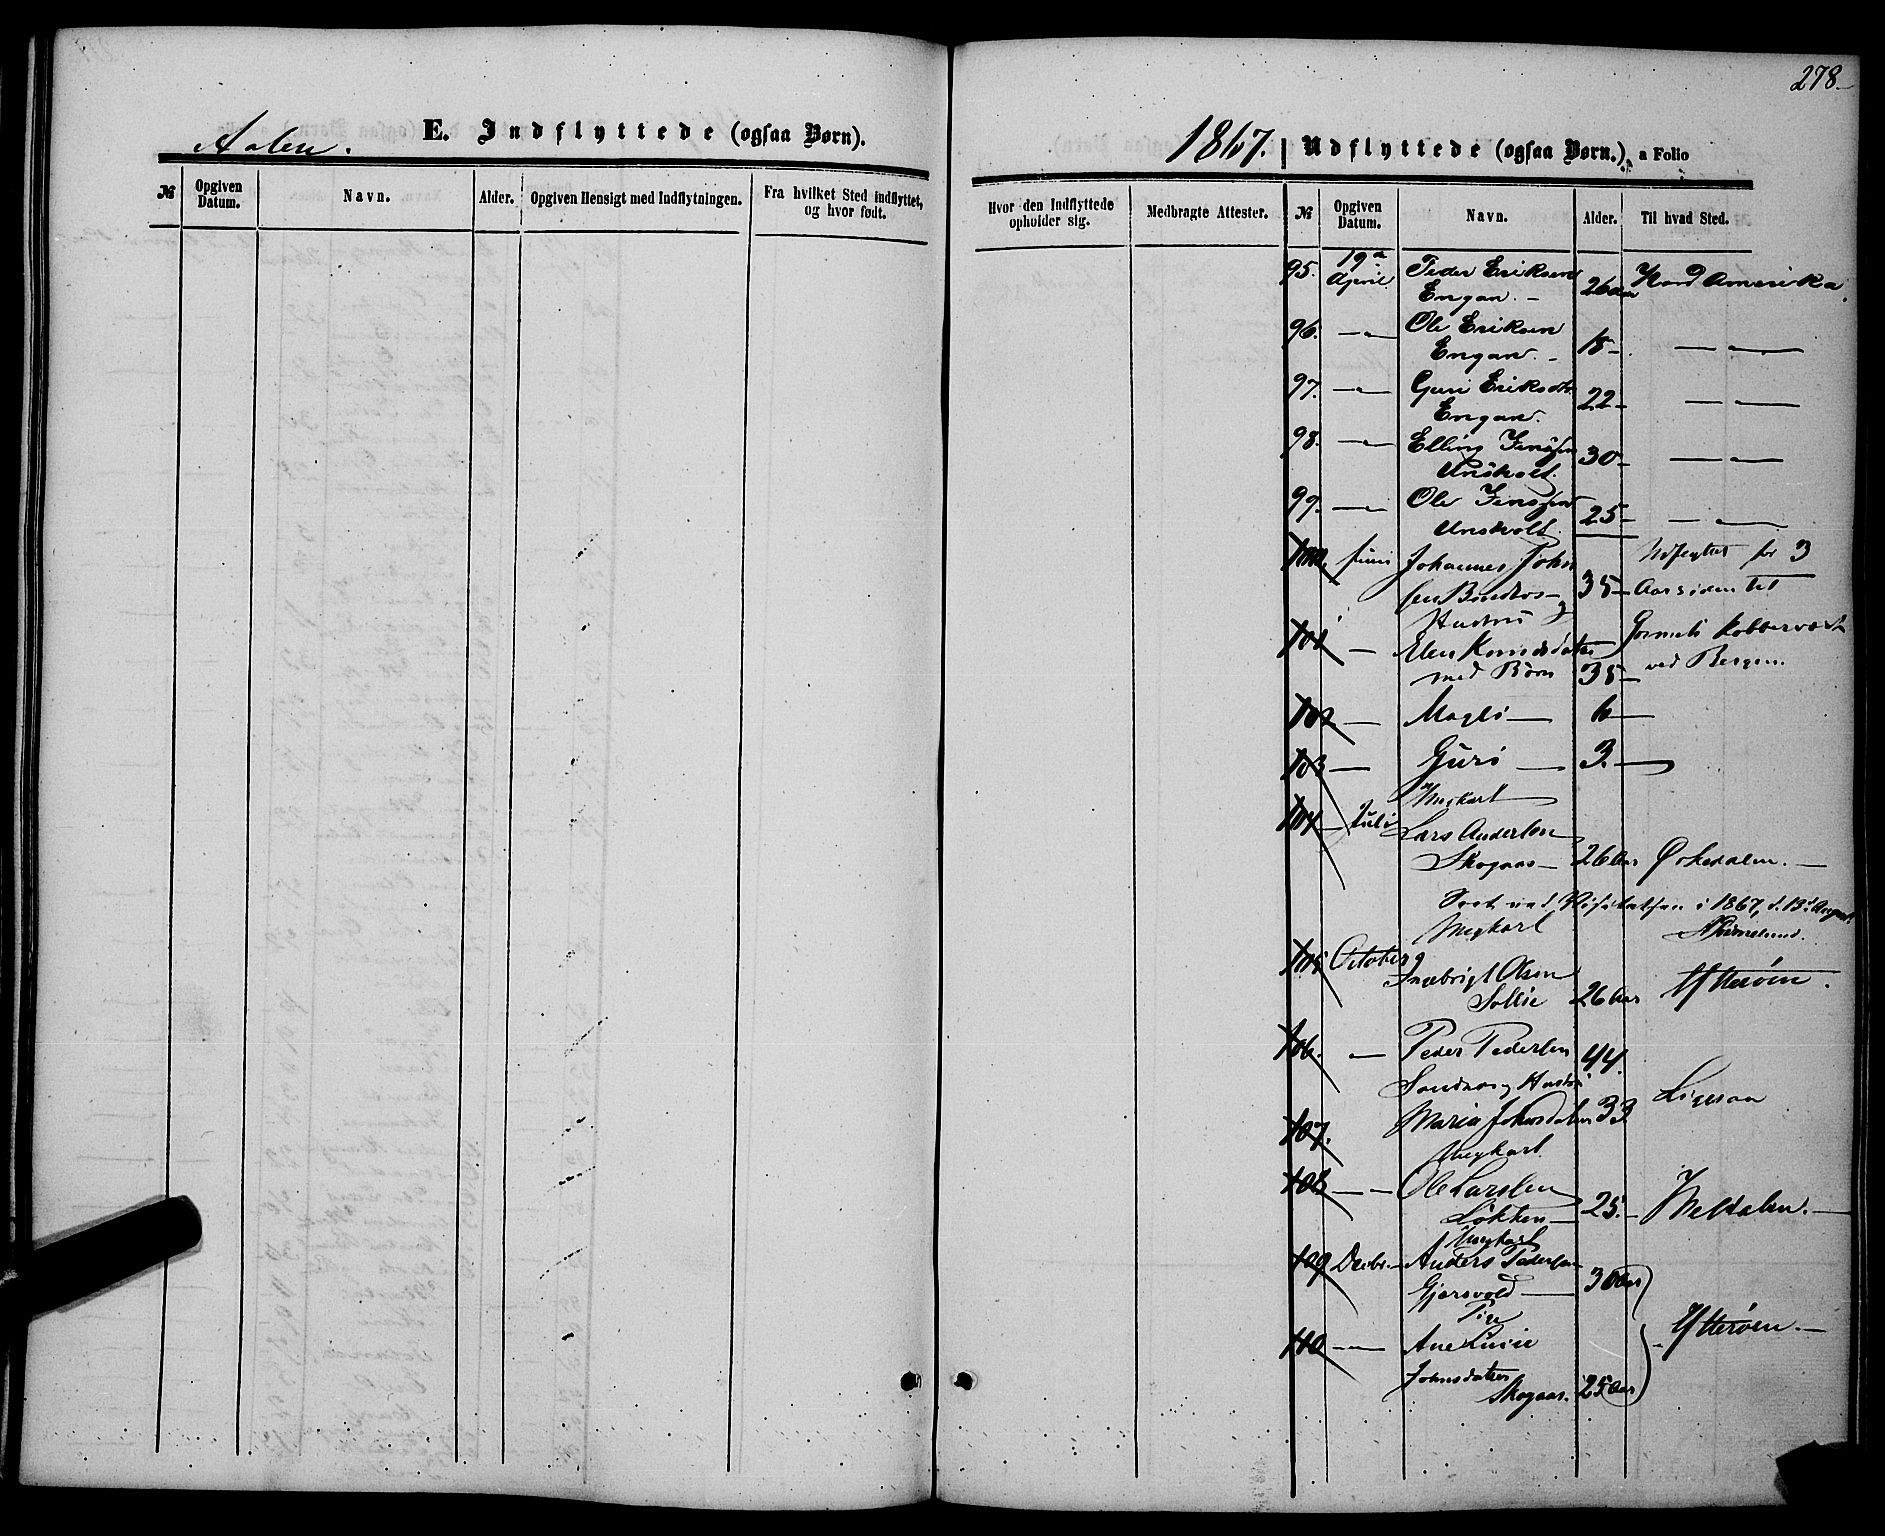 278
Aalen.
E. Indflyttede (ogsaa Børn).
1867. Udflyttede (ogsaa Børn.) a Folio
№ Opgiven Datum. Navn. Alder. Opgiven Hensigt med Indflytningen. Fra hvilket Sted indflyttet, og hvor født.
Hvor den Indflyttede opholder sig. Medbragte Attester. № Opgiven Datum. Navn. Alder. Til hvad Sted.
95. 19de April. Peder Eriksen Engan. 26 Aar Nord Amerika.
96. — Ole Eriksen Engan. 18 —
97. — Guri Eriksdtr. Engan. 22 —
98. — Elling Jensen Unsholt. 30 —
99. — Ole Jensen Unsholt 25 —
100. Juni Johannes John
sen Bendaas og 35 — for 3
Hustru Aar siden til
101 — Elen Jonsdatter Kobberværk
med Børn 35 — ved Bergen.
102 — Magli — 6 —
103 — Guri — 3. —
Ungkarl
104 — Juli Lars Andersen
Skogaas — 26 Aar Ørkedalen. —
Seet ved Visitatsen i 1867, d. 13d August
Ungkarl
105 October Ingebrigt Olsen
Sollie 26 Aar Ytterøen.
106. — Peder Pedersen 44.
og Hustru Ligesaa
107. Maria Johnsdatter 33
Ungkarl
108 — — Ole Larsen
Løkken — 25. — Meldalen. —
Ungkarl
109 Decbr. — Anders Pedersen
Gjersvold — 30 Aar
Pige
110 — Ane Lusie Ytterøen. —
Johnsdatter
Skogaas. 25 Aar